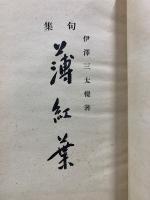 句集
伊澤三太樓著
薄紅葉